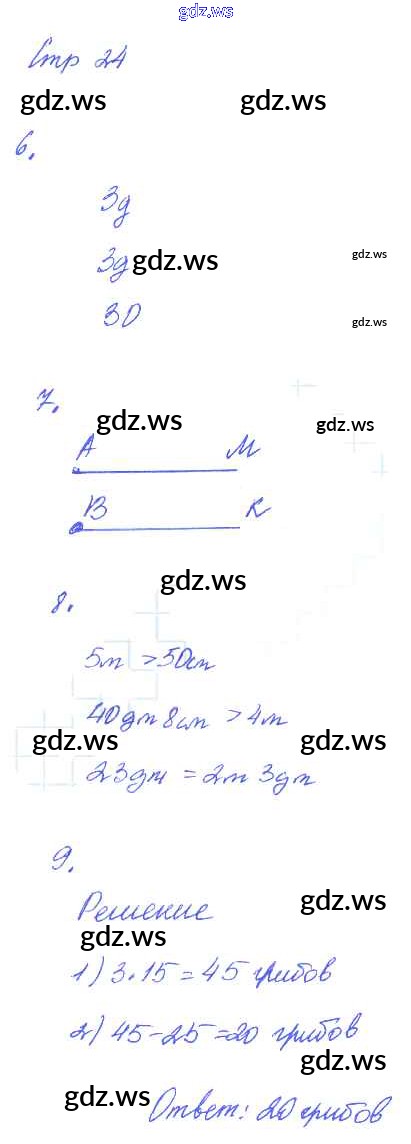 gdz.ws
Стр 24
gdz.ws gdz.ws
6.
3д
3д gdz.ws gdz.ws
30 gdz.ws
7.
gdz.ws gdz.ws
А М
В К
gdz.ws
8.
5м > 50см
40дм 8см > 4м
gdz.ws gdz.ws
23дм = 2м 3дм
9.
Решение gdz.ws
gdz.ws
1) 3·15=45 грибов
2) 45-25=20 грибов
gdz.ws
gdz.ws Ответ: 20 грибов